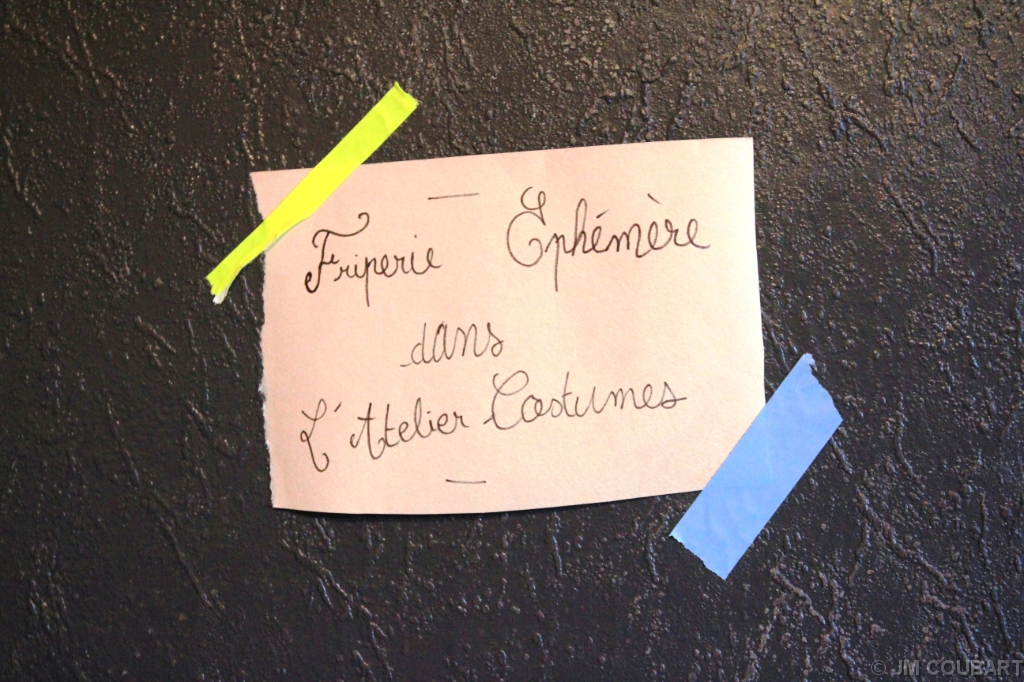 Friperie Ephémère
dans
L'Atelier Costumes
© JM COUBART